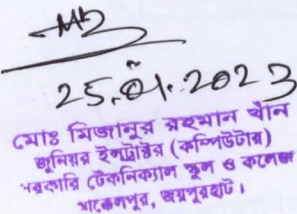 25.01.2023
মোঃ মিজানুর রহমান খাঁন
জুনিয়র ইন্সট্রাক্টর (কম্পিউটার)
সরকারি টেকনিক্যাল স্কুল ও কলেজ
আক্কেলপুর, জয়পুরহাট।